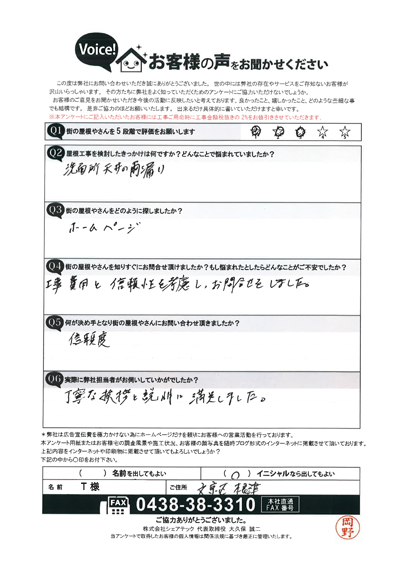 Voice!
お客様の声をお聞かせください
この度は弊社にお問い合わせいただき誠にありがとうございました。世の中には弊社の存在やサービスをご存知ないお客様が
沢山いらっしゃいます。その方たちに弊社をよく知っていただくためのアンケートにご協力いただけないでしょうか。
お客様のご意見をお聞かせいただき今後の活動に反映したいと考えております。良かったこと、嬉しかったこと、どのような些細な事
でも結構です。是非ご協力のほどお願いいたします。出来るだけ具体的に書いていただけますと幸いです。
※本アンケートにご記入いただいたお客様には工事ご用命時に工事金額税抜きの2%をお値引きさせていただきます。
Q1 街の屋根やさんを5段階で評価をお願いします ☆ ☆ ☆ ☆ ☆
Q2 屋根工事を検討したきっかけは何ですか?どんなことで悩まれていましたか?
洗面所天井の雨漏り
Q3 街の屋根やさんをどのように探しましたか?
ホームページ
Q4 街の屋根やさんを知りすぐにお問合せ頂けましたか?もし悩まれたとしたらどんなことがご不安でしたか?
工事費用と信頼性を考慮し、お問合せをしました。
Q5 何が決め手となり街の屋根やさんにお問い合わせ頂きましたか?
信頼度
Q6 実際に弊社担当者がお伺いしていかがでしたか?
丁寧な挨拶と説明に満足しました。
*弊社は広告宣伝費を極力かけない為にホームページだけを頼りにお客様への営業活動を行っております。
本アンケート用紙またはお客様宅の調査風景や施工状況、お客様の顔写真を随時ブログ形式のインターネットに掲載させて頂いております。
上記内容をインターネットや印刷物に掲載させて頂いてもよろしいでしょうか?
下記の中から〇印をお付け下さい。
( )名前を出してもよい (○)イニシャルなら出してもよい
名前 T 様 ご住所 文京区 根津
FAX 0438-38-3310 本社直通 FAX番号
ご協力ありがとうございました。
株式会社シェアテック 代表取締役 大久保 誠二
当アンケートで取得したお客様の個人情報は関係法規に基づき厳正に管理いたします。
岡野